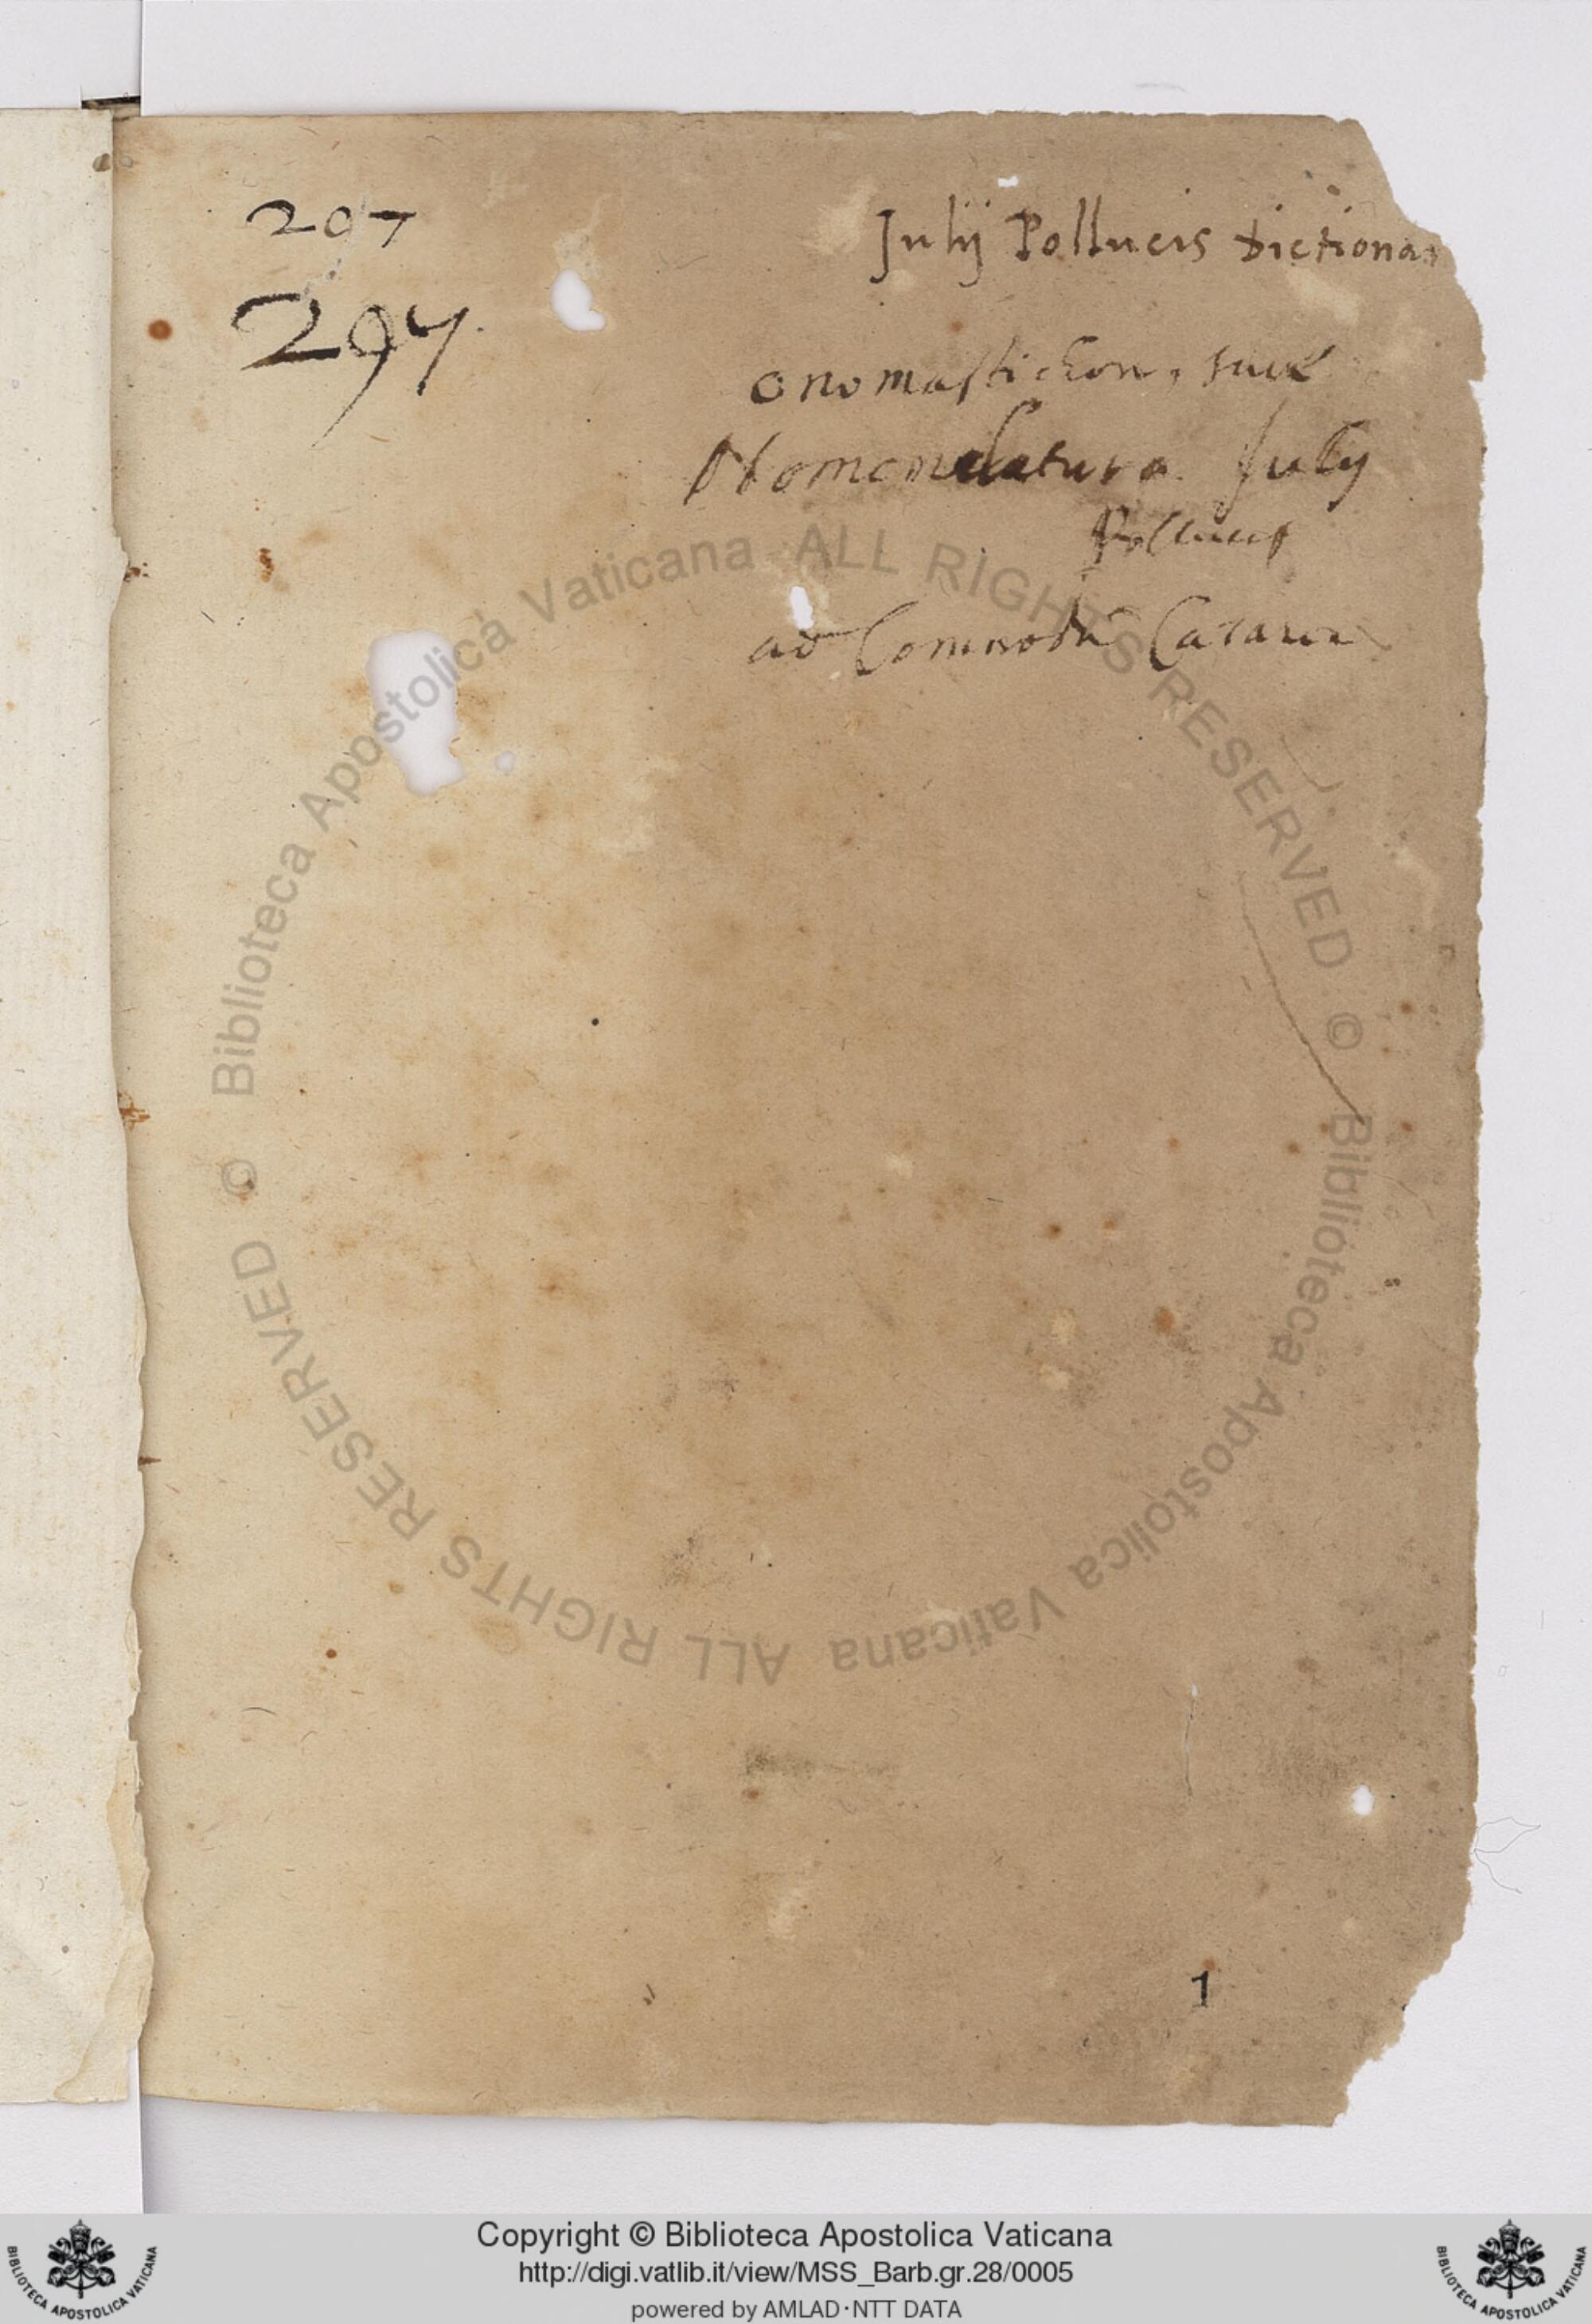 297
297.
Julij Pollucis Dictionar
onomasticon, siue
Nomenclatura Julij
Pollucis
ad Commodū
1
Biblioteca Apostolica Vaticana ALL RIGHTS RESERVED ©
Biblioteca Apostolica Vaticana ALL RIGHTS RESERVED ©
Copyright © Biblioteca Apostolica Vaticana
http://digi.vatlib.it/view/MSS_Barb.gr.28/0005
powered by AMLAD·NTT DATA
BIBLIOTECA APOSTOLICA VATICANA
BIBLIOTECA APOSTOLICA VATICANA